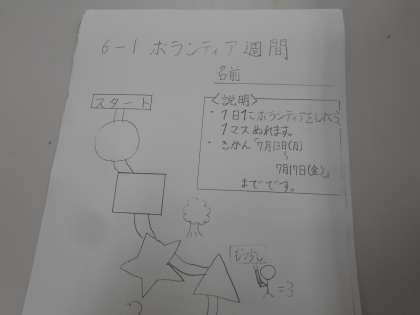 6-1 ボランティア週間
名前
スタート
<説明>
・1日1こボランティアをしたら
1マスぬれます。
・きかん「7月13日(月)
~
7月17日(金)」
までです。